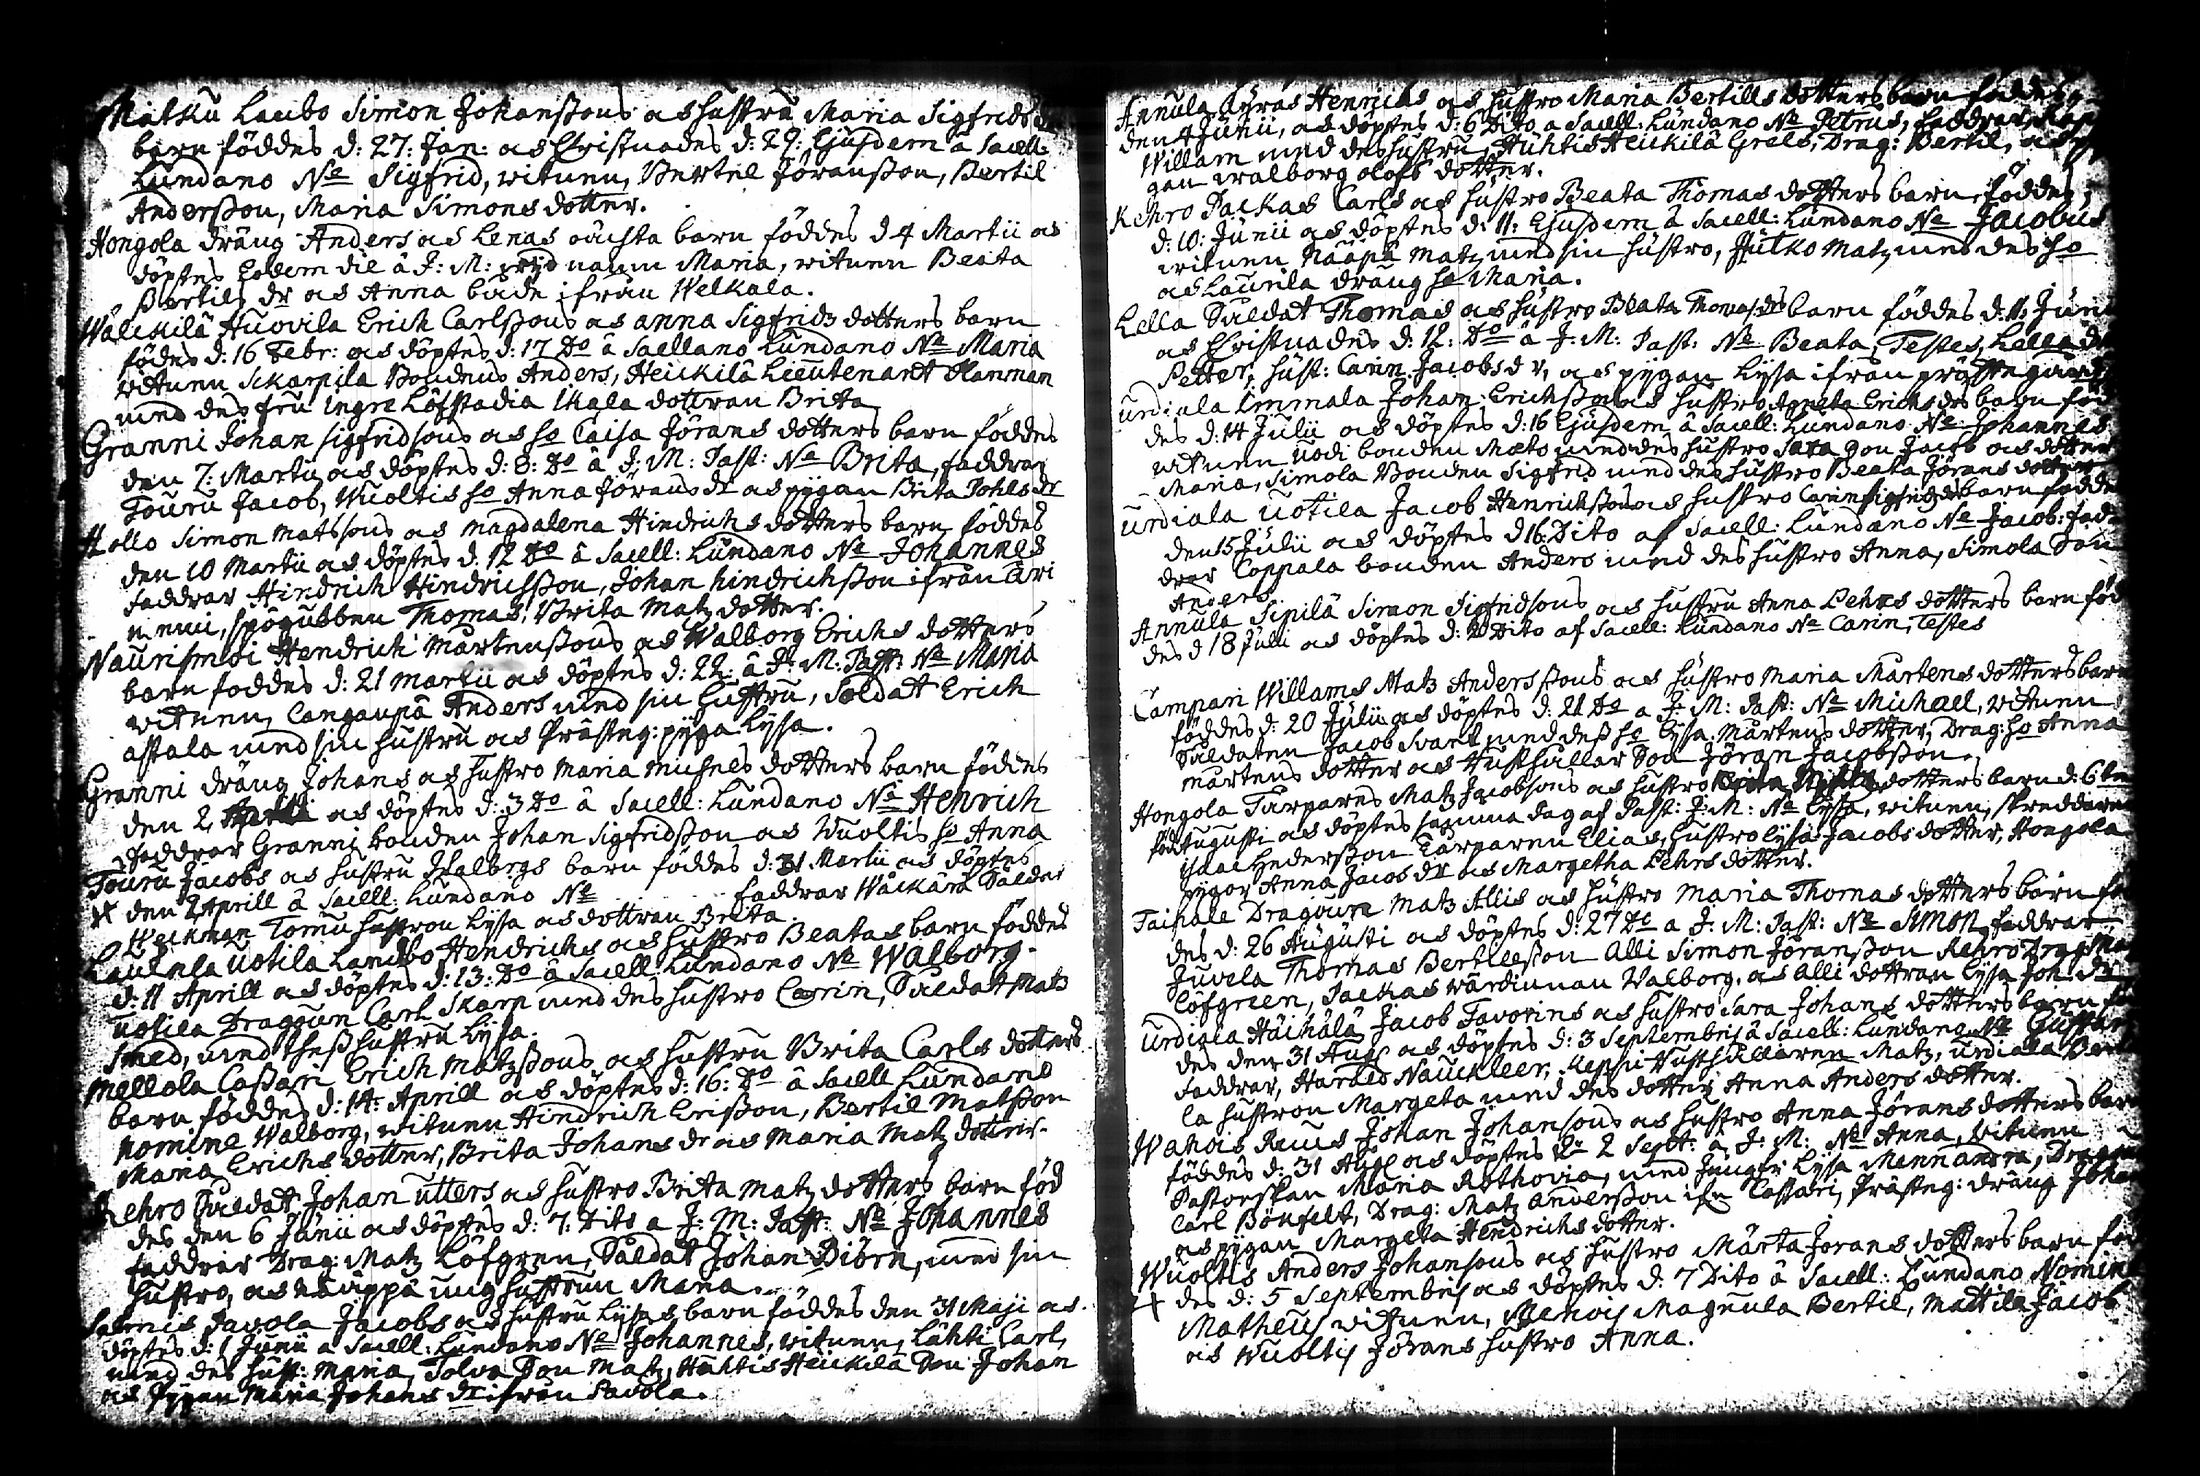 Matku Laubo Simon Johanßons och hustru Maria Sigfrids
barn föddes d: 27: Jan: och Christnades d: 29: Ejusdem â Sacell:
Lundano Ne Sigfrid, witnen, Bertel Jöranßon, Bertil
Anderßon, Maria Simons dotter.
Hongola dräng Anders och Lenas oächta barn föddes d 4 Martii och
döptes Eodem die â J: M: wid namn Maria, witnen Beata
Bertils dr och Anna både ifrån Welkala.
Wälckilä Huovila Erich Carlßons och anna Sigfridz dotters barn
födes d: 16 Febr: och döptes d: 17 Do â Sacellano Lundano Ne Maria
witnen Skarpila Bondens Anders, Heickilä Lieutenant
med des fru Ingre Löfstadia Ikala dottren Brita
Granni Johan Sigfridsons och ho Caisa Jörans dotters barn föddes
den 7: Martii och döptes d: 8: Do â J: M: Past: Ne Brita, faddrar
Touru Jacob, Wuoltis ho Anna Jörans dr och pygan Brita Pohls dr
Hollo Simon Matssons och Magdalena Hindrichs dotters barn föddes
den 10 Martii och döptes d: 12 Do â Sacell: Lundano Ne Johannes
faddrar Hindrich Hindrichßon, Johan hindrichßon ifrån Äri
niemi, spögubben Thomas, Brita Matz dotter.
Naurismoi Hendrich Mårtenßons och Walborg Erichs dotters
barn föddes d: 21 martii och döptes d: 22: â J: M: Past: Ne Maria
witnen, Cangaspä Anders med sin hustru, Soldat Erich
astala med sin hustru och Prästeg: pyga Lysa.
Granni dräng Johans och hustro Maria Michels dotters barn föddes
den 2 och döptes d: 3 Do â Sacell: Lundano Ne Henrich
faddrar Granni bonden Johan Sigfridßon och Wuoltis ho Anna
Touru Jacobs och hustru Walborgs barn föddes d: 31 Martii och döptes
den 2 Aprill â Sacell: Lundano Ne faddrar Wäckärä Soldat
Weckman Tomu hustron Lysa och dottran Brita.
Laulula Uotila Lambo Hendrichs och hustro Beatas barn föddes
d: 11 Aprill och döptes d: 13: Do â Sacell: Lundano Ne Walborg.
Uotila Dragoun Carl Skarp med des hustro Carin, Soldat Matz
Smed, med theß hustru Lysa.
Mellola Caßari Erich Matzßons och hustru Brita Carls dotters
barn föddes d: 14: Aprill och döptes d: 16: Do â Sacell Lundano
nomine Walborg, witnen Hindrich Erißon, Bertil Matßon
Maria Erichs dotter, Brita Johans dr och Maria Matz dotter.
Rehro Soldat Johan Utters och hustro Brita Matz dotters barn föd
des den 6 Junii och döptes d: 7. Dito a J: M: Past: Ne Johannes
faddrar Drag: Matz Löfgren, Soldat Johan Biörn, med sin
hustro, och Knäppä ung hustrun Maria.
Salmis Pavola Jacobs och hustru Lysas barn föddes den 31 Maji och
döptes d: 1 Junii a Sacell: Lundano Ne Johannes, witnen, Lähti Carl,
med des hust: Maria, Tolva Son Matz, Huhtis Heickilä Son Johan
och Pygan Maria Johans dr ifrån Pavola.
Annula Kyras Henrichs och hustro Maria Bertills dotters barn föddes
den 4 Junii, och döptes d: 6 Dito a Sacell: Lundano Ne Petrus, faddrar,
Willam med des hustru, Huhtis Heickilä Grels, Drag: Bertil, och py
gan Walborg olofs dotter.
Rehro Packas Carls och hustro Beata Thomas dotters barn, föddes,
d: 10: Junii och döptes d: 11: Ejusdem â Sacell: Lundano Ne Jacobus
witnen Nääpä Matz med sin hustro, Hutko Matz med des ho
och Laurila dräng ho Maria.
Lella Soldat Thomas och hustro Beata Thomas dr barn föddes d: 11: Juni
och Christnades d: 12: Do â J: M: Past: Ne Beata, Testes, Lella
Petter, hust: Carin Jacobs dr, och pygan Lysa ifrån prästegård
Urdiala Immala Johan Erichßons och hustro Agneta Erichs drs barn föd
des d: 14 Julii och döptes d: 16 Ejusdem â Sacell: Lundano Ne Johannes
witnen Uodi bonden Mats med des hustro Sara Son Jacob och dotter
Maria, Simola Bonden Sigfrid med des hustro Beata Jörans dotter
Urdiala Uotila Jacob Henrichßons och hustro Carin Sigfrids dr barn födde
den 15 Julii och döptes d 16: Dito af Sacell: Lundano Ne Jacob: fad
drar Coppala bonden Anders med des hustro Anna, Simola Son
Anders.
Annula Sipilä Simon Sigfridsons och hustru Anna Pehrs dotters barn föd
des d 18 Juli och döptes d: 20 Dito af Sacell: Lundano Ne Carin, Testes
Campari Willams Matz Anderßons och hustro Maria Mårtens dotters barn
föddes d: 20 Julii och döptes d: 21 Do a J: M: Past: Ne Michael, witnen
Soldaten Jacob Svart med deß ho Lysa Mårtens dotter, Drag: ho Anna
mårtens dotter och Hushållar Son Jöran Jacobßon.
Hongola Tarpares Matz Jacobsons och hustro dotters barn d: 6 te
föd Augusti och döptes samma dag af Past: J: M: Ne Lysa, witnen, skreddaren
Isaac Hederßon Tarparen Elias, hustro Lysa Jacobs dotter, Hongola
pygor Anna Jacobs dr och Margetha Pehrs dotter.
Taipale Dragoun Matz Allis och hustro Maria Thomas dotters barn fö
des d: 26 Augusti och döptes d: 27 Do a J: M: Past: Ne Simon, faddrar
Juvela Thomas Bertilßon Alli Simon Jöranßon Rehro Drag Ma
Löfgreen, Packas wärdinnan Walborg, och Alli dottran Lysa Joh: dr
Urdiala Häihälä Jacob Favorins och hustro Sara Johans dotters barn fö
des den 31 Aug och döptes d: 3 Septembris â Sacell: Lundano Ne Gustav
faddrar, Harald Nauckleer, Keppi Hushållaren Matz, Urdiala
la hustron Margeta med des dotter Anna Anders dotter.
Wahois Reus Johan Johansons och hustro Anna Jörans dotters barn
föddes d: 31 Aug och döptes d: 2 Sept: a J: M: Ne Anna, witnen
Pastorskan Maria Rothovia, med Jungfr Lysa Mennandra, Dragoun
Carl Bönfelt, Drag: Matz Anderßon ifn Cassari, Prästeg: dräng Johan
och pygan Margeta Hendrichs dotter.
Wuoltis Anders Johansons och hustro Märta Jörans dotters barn föd
des d: 5 Septembris och döptes d: 7 Dito â Sacell: Lundano Nomine
Matheus witnen, Menois Magnula Bertil, Mattila Jacob
och Wuoltis Jörans hustro Anna.